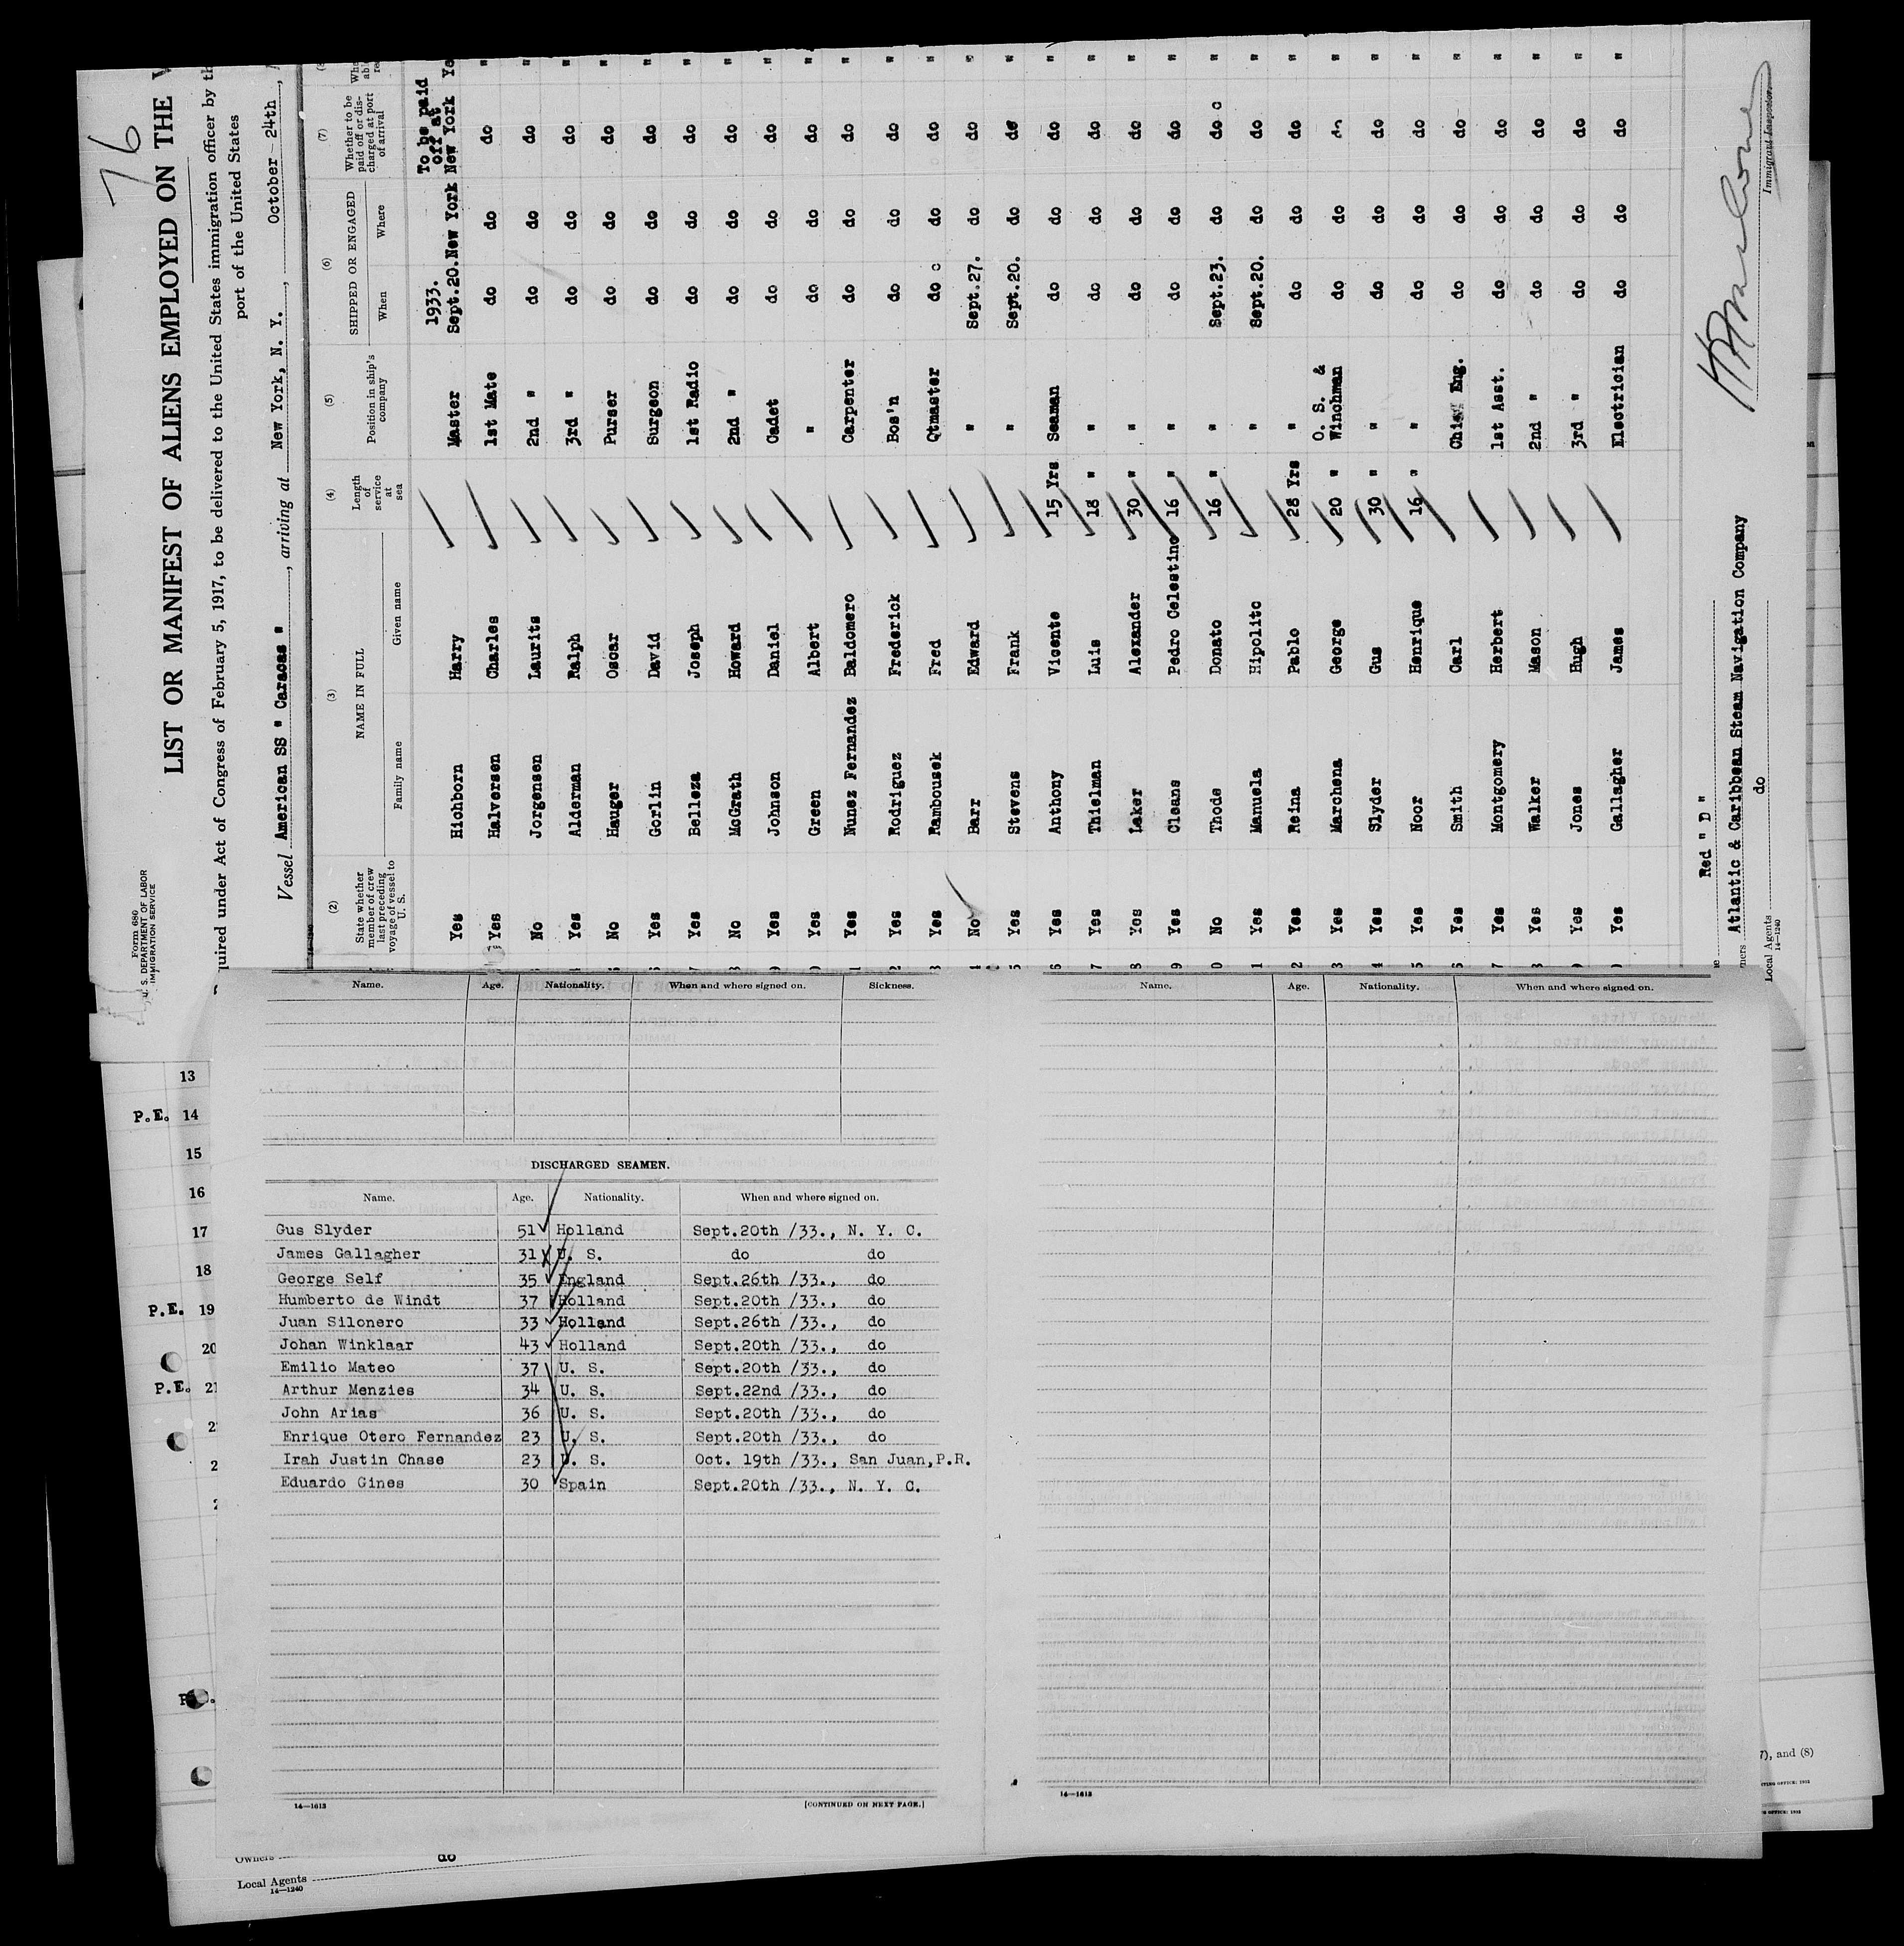 76
Form 680
U. S. DEPARTMENT OF LABOR
IMMIGRATION SERVICE
LIST OR MANIFEST OF ALIENS EMPLOYED ON THE
quired under Act of Congress of February 5, 1917, to be delivered to the United States immigration officer by th
port of the United States
Vessel American SS " Caracas " , arriving at New York, N. Y. , October 24th ,
(2) (3) (4) (5) (6) (7)
State whether member of crew last preceding voyage of vessel to U. S.
NAME IN FULL
Family name Given name
Length of service at sea
Position in ship's company
SHIPPED OR ENGAGED
When Where
Whether to be paid off or discharged at port of arrival
1933. To be paid off at
Yes Hichborn Harry Master Sept.20. New York New York Ye
Yes Halversen Charles 1st Mate do do do "
No Jorgensen Laurits 2nd " do do do "
Yes Alderman Ralph 3rd " do do do "
No Hauger Oscar Purser do do do "
Yes Gorlin David Surgeon do do do "
Yes Belleza Joseph 1st Radio do do do "
No McGrath Howard 2nd " do do do "
Yes Johnson Daniel Cadet do do do "
Yes Green Albert " do do do "
Yes Nunez Fernandez Baldomero Carpenter do do do "
Yes Rodriguez Frederick Bos'n do do do "
Yes Rambousek Fred Qtmaster do do do "
No Barr Edward " Sept.27. do do "
Yes Stevens Frank " Sept.20. do do "
Yes Anthony Vicente 15 Yrs Seaman do do do "
Yes Thielman Luis 18 " " do do do "
Yes Laker Alexander 30 " " do do do "
Yes Cleans Pedro Celestino 16 " " do do do "
No Thode Donato 16 " " Sept.23. do do "
Yes Manuela Hipolito " Sept.20. do do "
Yes Reina Pablo 28 Yrs " do do do "
Yes Marchena George 20 " O. S. & Winchman do do do "
Yes Slyder Gus 30 " " do do do "
Yes Noor Henrique 16 " " do do do "
Yes Smith Carl Chief Eng. do do do "
Yes Montgomery Herbert 1st Asst. do do do "
Yes Walker Mason 2nd " do do do "
Yes Jones Hugh 3rd " do do do "
Yes Gallagher James Electrician do do do "
Red " D "
ners Atlantic & Caribbean Steam Navigation Company
Local Agents do
14—1240
Immigrant Inspector.
Name. Age. Nationality. When and where signed on. Sickness.
Name. Age. Nationality. When and where signed on.
13
P.E. 14
15
16
17
18
P.E. 19
20
P.E. 21
DISCHARGED SEAMEN.
Name. Age. Nationality. When and where signed on.
Gus Slyder 51 Holland Sept.20th /33., N. Y. C.
James Gallagher 31 U. S. do do
George Self 35 England Sept.26th /33., do
Humberto de Windt 37 Holland Sept.20th /33., do
Juan Silonero 33 Holland Sept.26th /33., do
Johan Winklaar 43 Holland Sept.20th /33., do
Emilio Mateo 37 U. S. Sept.20th /33., do
Arthur Menzies 34 U. S. Sept.22nd /33., do
John Arias 36 U. S. Sept.20th /33., do
Enrique Otero Fernandez 23 U. S. Sept.20th /33., do
Irah Justin Chase 23 U. S. Oct. 19th /33., San Juan,P.R.
Eduardo Gines 30 Spain Sept.20th /33., N. Y. C.
14—1613 [CONTINUED ON NEXT PAGE.]
14—1613
7), and (8)
Owners do
Local Agents
14—1240